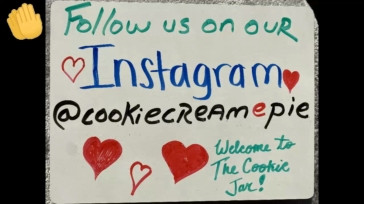 Follow us on our
Instagram
@cookiecreamepie
Welcome to
The Cookie
Jar!